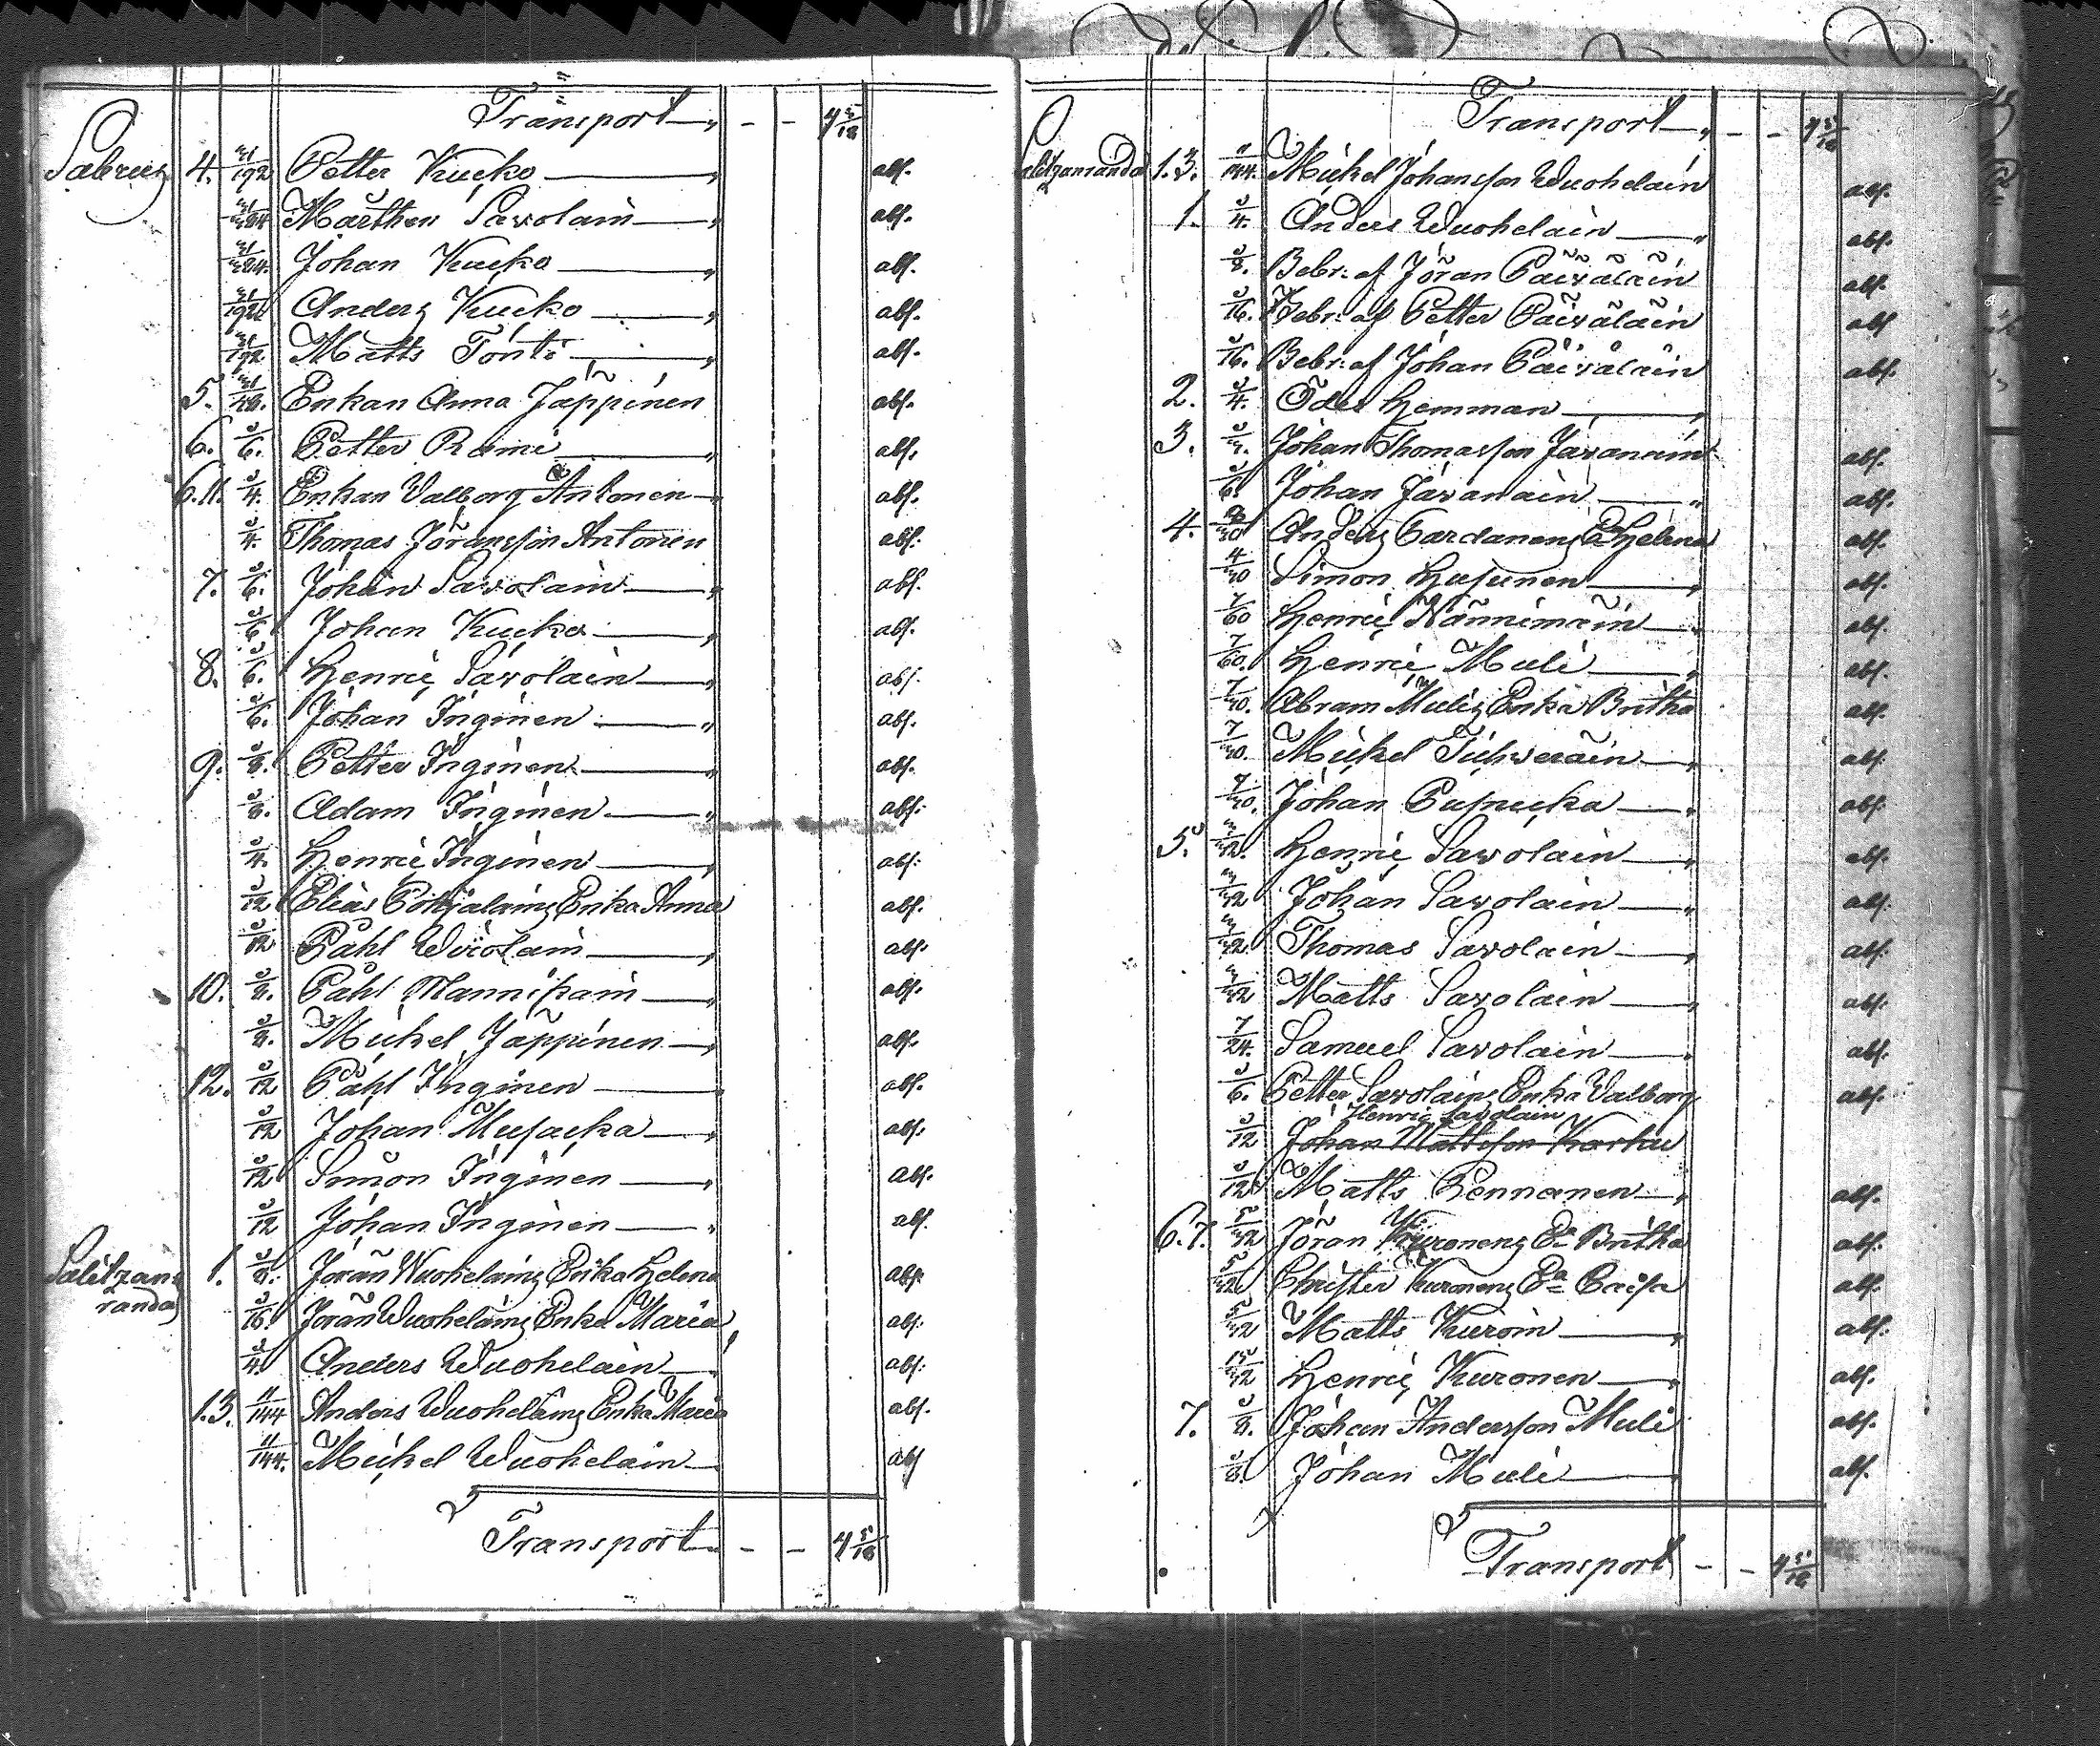 Transport — — 4 5/18
Sabrux 4. 31/192 Petter Kucko abs.
Mårthen Savolain abs.
Johan Kucko abs.
31/192 Anders Kucko abs.
31/192 Matts Tontti abs.
5. Enkan Anna Jäppinen abs.
6. 1/6. Petter Rämi abs.
6.11. 1/4. Enkan Valborg Antonen abs.
1/4. Thomas Jöransson Antonen abs.
7. 1/6. Johan Savolain abs.
1/6 Johan Kucko abs.
8. 1/6. Henric Savolain abs.
1/6. Johan Inginen abs.
9. 1/8. Petter Inginen abs.
1/8. Adam Inginen abs.
1/4. Henric Inginen abs.
1/12 Elias Pohjalains Enka Anna abs.
1/12 Påhl Wirolain abs.
10. 1/8. Påhl Mannikain abs.
1/8. Mickel Jäppinen abs.
12. 1/12 Påhl Inginen abs.
1/12 Johan Musacka abs.
1/12 Simon Inginen abs.
1/12 Johan Inginen abs.
Salitzan= 1. 1/8. Jöran Wuohelains Enka Helena abs.
randa 1/16. Jöran Wuohelains Enka Maria abs.
1/4. Anders Wuohelain abs.
1.3. 11/144 Anders Wuohelains Enka Maria abs.
11/144. Mickel Wuohelain abs
Transport — — 4 5/18
Transport — — 4 5/18
Salitzanranda 1.3. 11/144. Mickel Johansson Wuohelain abs.
1. 1/4. Anders Wuohelain abs.
1/8. Bebr: af Jöran Päiväläin abs.
1/16. Bebr: af Petter Päiväläin abs
1/16. Bebr: af Johan Päiväläin abs.
2. 1/4. Öde Hemman
3. Johan Thomasson Javanain abs.
1/6. Johan Javanain abs.
4. Anders Pardanens Ea Helena abs.
Simon Husunen abs.
7/60 Henric Nännimäin abs.
7/60. Henric Muli abs.
Abram Mulis Enka Britha abs.
Mickel Tichverain abs.
Johan Pusnicka abs.
5. Henric Savolain abs.
Johan Savolain abs.
Thomas Savolain abs.
Matts Savolain abs.
7/24. Samuel Savolain abs.
1/6. Petter Savolains Enka Valborg abs.
Henric Savolain
1/12 Johan Mattsson Karku
1/12 Matts Rennanen abs.
6.7. Jöran Kuronens Ea Britha abs.
Christer Kuronens Ea Caisa abs.
Matts Kuroin abs.
Henric Kuronen abs.
7. 1/8. Johan Andersson Muli abs.
1/8. Johan Muli abs.
Transport — — 4 5/18